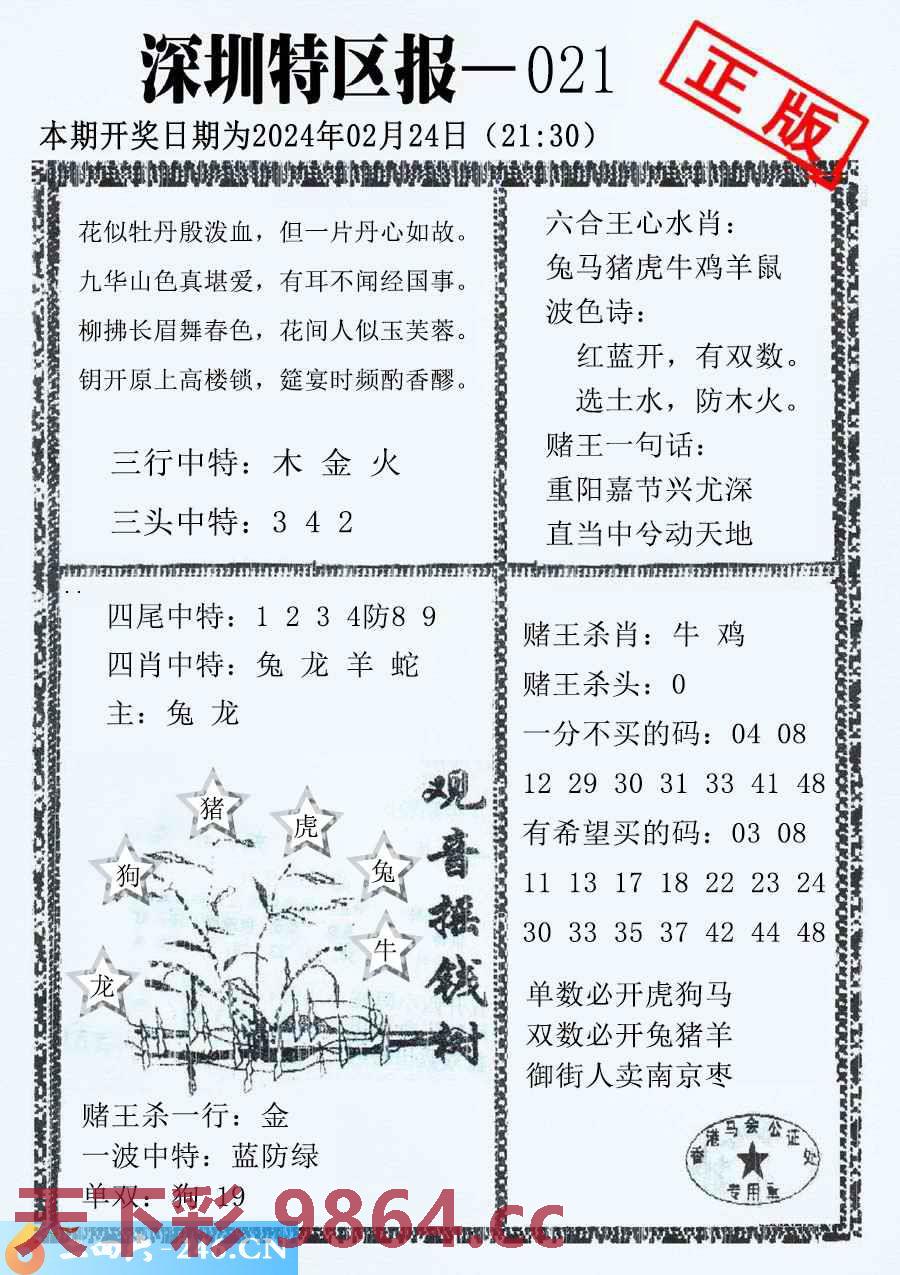 深圳特区报—021
正版
本期开奖日期为2024年02月24日（21:30）
花似牡丹殷泼血，但一片丹心如故。
九华山色真堪爱，有耳不闻经国事。
柳拂长眉舞春色，花间人似玉芙蓉。
钥开原上高楼锁，筵宴时频酌香醪。
三行中特：木 金 火
三头中特：3 4 2
六合王心水肖：
兔马猪虎牛鸡羊鼠
波色诗：
红蓝开，有双数。
选土水，防木火。
赌王一句话：
重阳嘉节兴尤深
直当中兮动天地
四尾中特：1 2 3 4防8 9
四肖中特：兔 龙 羊 蛇
主：兔 龙
猪
虎
狗
兔
牛
龙
观音摇钱树
赌王杀一行：金
一波中特：蓝防绿
单双：狗 19
赌王杀肖：牛 鸡
赌王杀头：0
一分不买的码：04 08
12 29 30 31 33 41 48
有希望买的码：03 08
11 13 17 18 22 23 24
30 33 35 37 42 44 48
单数必开虎狗马
双数必开兔猪羊
御街人卖南京枣
香港马会公证处
专用章
天下彩 9864.cc
-246.CN